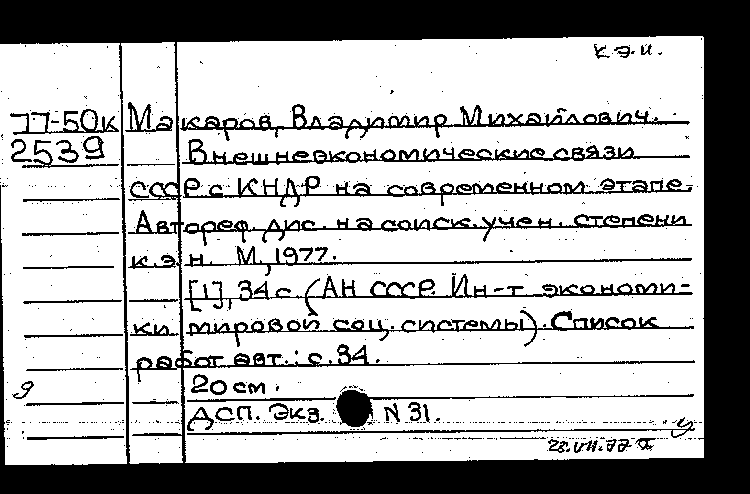 к.э.н.
77-50к Макаров, Владимир Михайлович.
2539 Внешнеэкономические связи
СССР с КНДР на современном этапе.
Автореф. дис. на соиск. учен. степени
к.э.н. М., 1977.
[1], 34 с. (АН СССР. Ин-т экономи-
ки мировой соц. системы). Список
работ авт.: с. 34.
20 см.
ДСП. Экз. N 31.
у